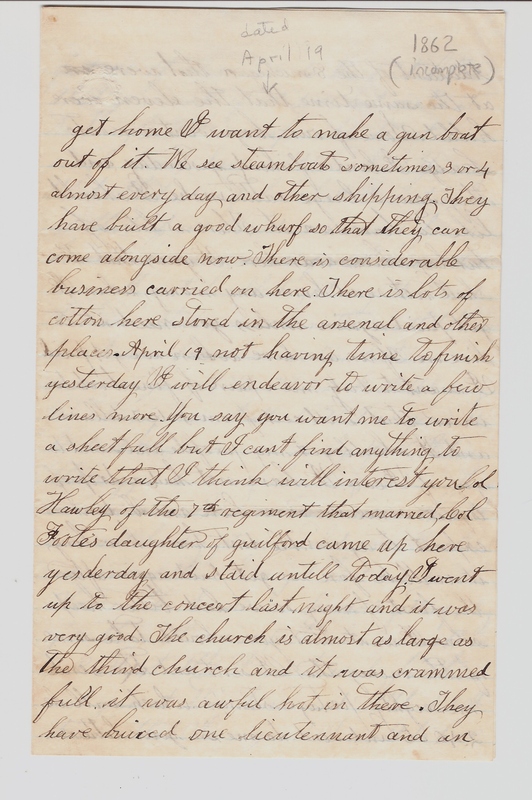 dated
April 19
1862
(incomplete)
get home I want to make a gun boat
out of it. We see steamboats sometimes 3 or 4
almost every day and other shipping. They
have built a good wharf so that they can
come alongside now. There is considerable
business carried on here. There is lots of
cotton here stored in the arsenal and other
places. April 19 not having time to finish
yesterday I will endeavor to write a few
lines more. You say you want me to write
a sheet full but I cant find anything to
write that I think will interest you. Col
Hawley of the 7th regiment that married Col
Foote's daughter of guilford came up here
yesderday and staid untill today. I went
up to the concert last night and it was
very good. The church is almost as large as
the third church and it was crammed
full. it was awful hot in there. They
have buired one lieutennant and an